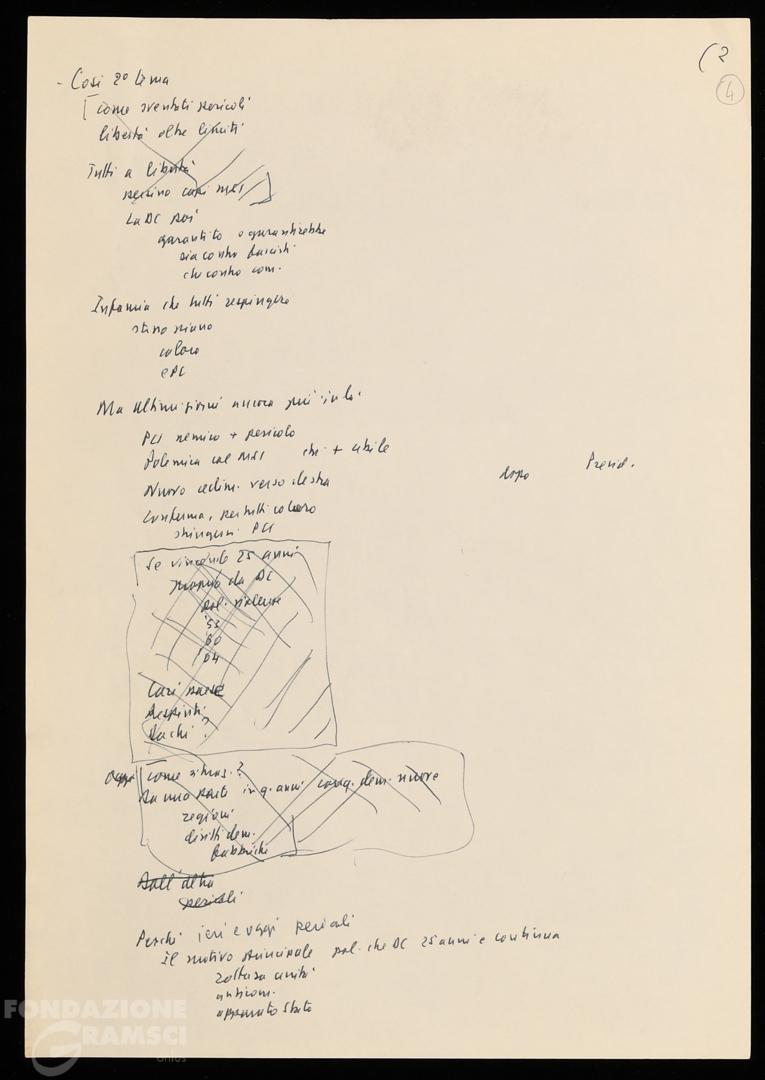 (2
4
- Così 2° tema
[ come sventati pericoli
libertà oltre limiti
Tutti a libertà
persino capi MSI ]
La DC poi
garantito o garantirebbe
sia contro fascisti
che contro com.
Infamia che tutti respingere
piano
coloro
e PCI
Ma ultimi giorni ancora più in là.
PCI nemico + pericolo
Polemica col MSI chi + abile
Nuovo cedim. verso destra
dopo Presid.
Conferma, per tutti coloro
stringersi PCI
Se vincendo 25 anni
proprio da DC
pol. violenze
'53
60
64
Cari paese
Respinti
Da chi?
Oggi [ Come rimos.?
Da una parte in q. anni conq. dem. nuove
regioni
diritti dem.
fabbriche ]
Dall'altra
pericoli
Perché ieri e oggi pericoli
Il motivo principale pol. che DC 25 anni e continua
rottura unità
anticom.
apparato Stato
FONDAZIONE
GRAMSCI
onlus